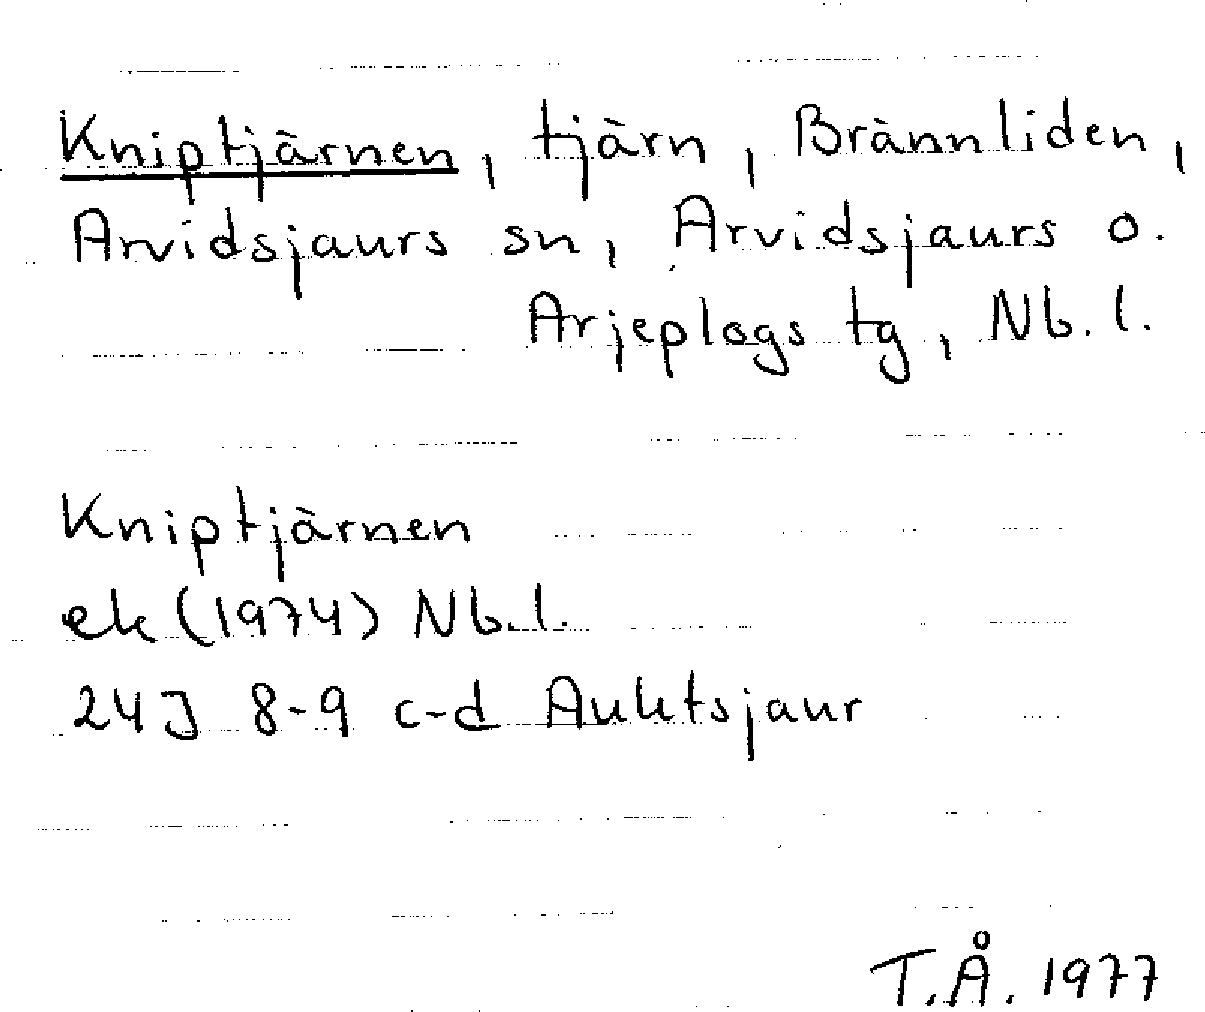 Kniptjärnen, tjärn, Brännliden,
Arvidsjaurs sn, Arvidsjaurs o.
Arjeplogs tg, Nb. l.
Kniptjärnen
ek (1974) Nb. l.
24J 8-9 c-d Auktsjaur
T.Å. 1977